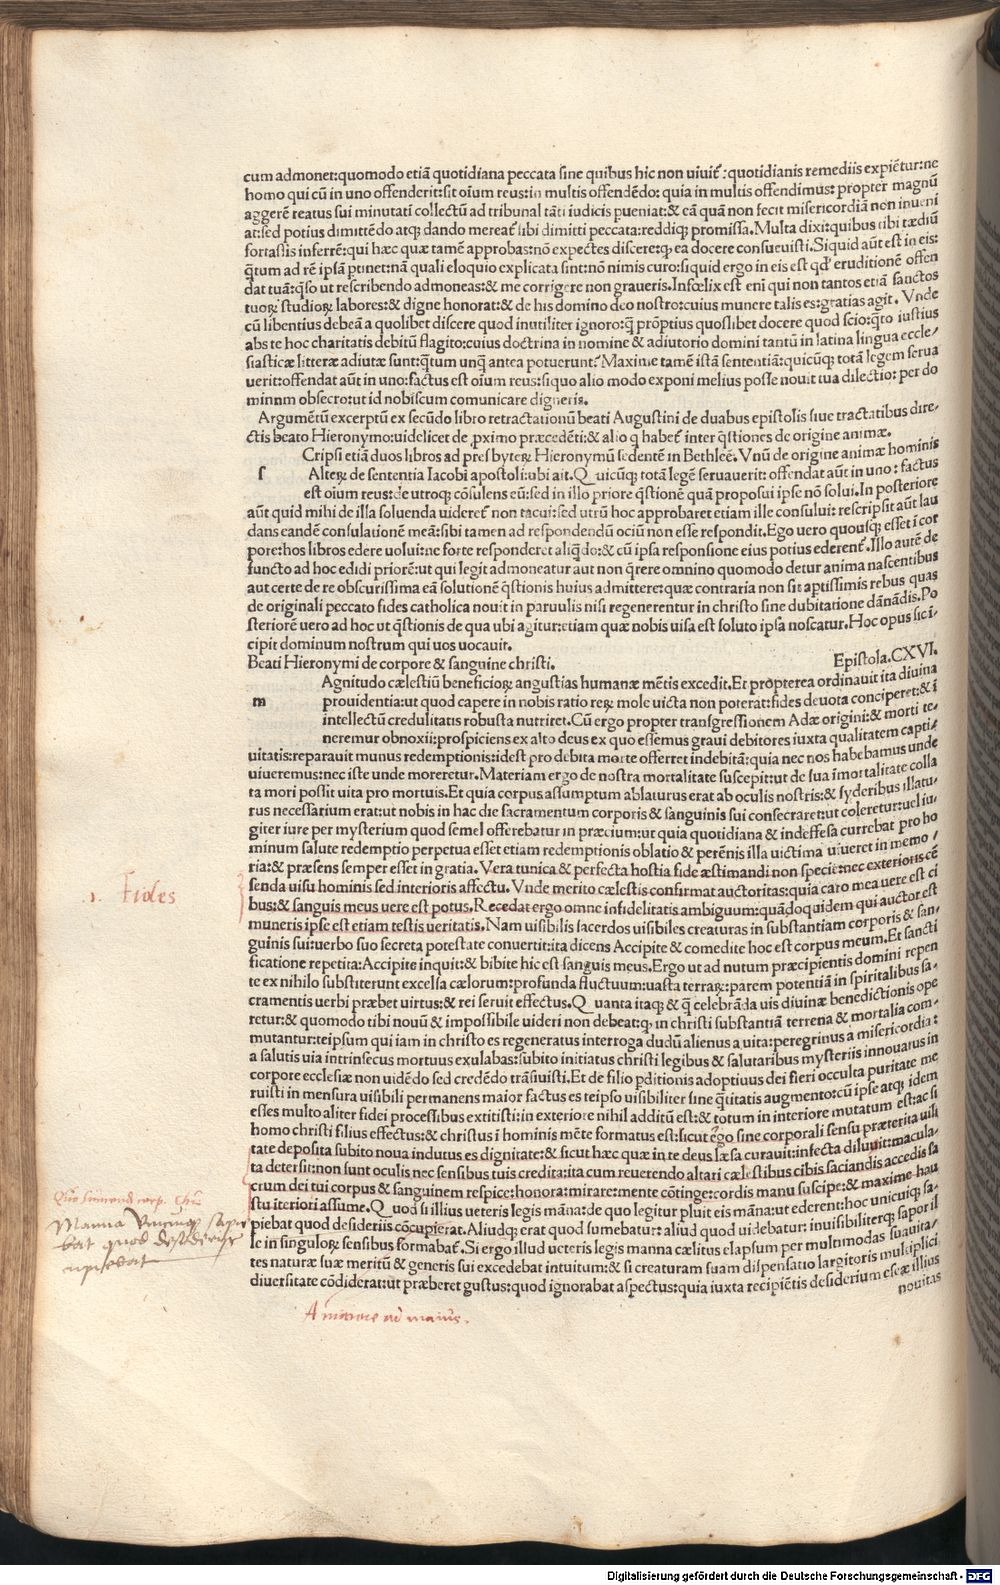 cum admonet:quomodo etiā quotidiana peccata sine quibus hic non uiuit̃:quotidianis remediis expiẽtur:ne
homo qui cū in uno offenderit:sit oium reus:in multis offendẽdo: quia in multis offendimus: propter magnū
aggerẽ reatus sui minutati collectū ad tribunal tāti iudicis pueniat:& eā quā non fecit misericordiā non inueni
at:sed potius dimittẽdo atq; dando mereat̃ sibi dimitti peccata:reddiq; promissa. Multa dixi:quibus tibi tædiū
fortassis inferrẽ:qui hæc quæ tamẽ approbas:nō expectes discere:q; ea docere consueuisti.Siquid aūt est in eis:
q̄tum ad rẽ ipsā ptinet:nā quali eloquio explicata sint:nō nimis curo:siquid ergo in eis est qd' eruditionẽ offen
dat tuā:q̄so ut rescribendo admoneas:& me corrigere non graueris.Infœlix est eni qui non tantos etiā sanctos
tuoꝝ studioꝝ labores:& digne honorat:& de his domino deo nostro:cuius munere talis es:gratias agit. Vnde
cū libentius debeā a quolibet discere quod inutiliter ignoro:q̄ prōptius quoslibet docere quod scio:q̄to iustius
abs te hoc charitatis debitū flagito:cuius doctrina in nomine & adiutorio domini tantū in latina lingua eccle/
siasticæ litteræ adiutæ sunt:q̄tum unq̄ antea potuerunt? Maxime tamẽ istā sententiā:quicūq; totā legem serua
uerit:offendat aūt in uno:factus est oium reus:siquo alio modo exponi melius posse nouit tua dilectio: per do
minum obsecro:ut id nobiscum comunicare digneris.
Argumẽtū excerptū ex secūdo libro retractationū beati Augustini de duabus epistolis siue tractatibus dire/
ctis beato Hieronymo:uidelicet de ꝓximo præcedẽti:& alio q habet̃ inter q̄stiones de origine animæ.
Cripsi etiā duos libros ad presbyteꝝ Hieronymū sedentẽ in Bethleẽ. Vnū de origine animæ hominis
f Alteꝝ de sententia Iacobi apostoli:ubi ait.Quicūq; totā legẽ seruauerit: offendat aūt in uno: factus
est oium reus:de utroq; cōsulens eū:sed in illo priore q̄stionẽ quā proposui ipse nō solui.In posteriore
aūt quid mihi de illa soluenda uideret̃ non tacui:sed utrū hoc approbaret etiam ille consului: rescripsit aūt lau
dans eandẽ consulationẽ meā:sibi tamen ad respondendū ociū non esse respondit.Ego uero quousq; esset i cor
pore:hos libros edere uolui:ne forte responderet aliq̄do:& cū ipsa responsione eius potius ederent̃.Illo autẽ de
functo ad hoc edidi priorẽ:ut qui legit admoneatur aut non q̄rere omnino quomodo detur anima nascentibus
aut certe de re obscurissima eā solutionẽ q̄stionis huius admittere:quæ contraria non sit aptissimis rebus quas
de originali peccato fides catholica nouit in paruulis nisi regenerentur in christo sine dubitatione dānādis.Po
steriorẽ uero ad hoc ut q̄stionis de qua ubi agitur:etiam quæ nobis uisa est soluto ipsa noscatur.Hoc opus sic i/
cipit dominum nostrum qui uos uocauit.
Beati Hieronymi de corpore & sanguine christi. Epistola.CXVI.
Agnitudo cælestiū beneficioꝝ angustias humanæ mẽtis excedit.Et propterea ordinauit ita diuina
m prouidentia:ut quod capere in nobis ratio reꝝ mole uicta non poterat:fides deuota conciperet:& i
intellectū credulitatis robusta nutriret.Cū ergo propter transgressionem Adæ origini:& morti te/
neremur obnoxii:prospiciens ex alto deus ex quo essemus graui debitores iuxta qualitatem capti/
uitatis:reparauit munus redemptionis:idest pro debita morte offerret indebitā:quia nec nos habebamus unde
uiueremus:nec iste unde moreretur.Materiam ergo de nostra mortalitate suscepit:ut de sua imortalitate colla
ta mori possit uita pro mortuis.Et quia corpus assumptum ablaturus erat ab oculis nostris:& syderibus illatu/
rus necessarium erat:ut nobis in hac die sacramentum corporis & sanguinis sui consecraret:ut coleretur:uel iu/
giter iure per mysterium quod semel offerebatur in præcium:ut quia quotidiana & indeffesa currebat pro ho
minum salute redemptio perpetua esset etiam redemptionis oblatio & perẽnis illa uictima uiueret in memo/
ria:& præsens semper esset in gratia. Vera tunica & perfecta hostia fide æstimandi non specie:nec exterioris cẽ
senda uisu hominis sed interioris affectu. Vnde merito cælestis confirmat auctoritas:quia caro mea uere est ci
bus:& sanguis meus uere est potus.Recedat ergo omne infidelitatis ambiguum:quādoquidem qui auctor est
muneris ipse est etiam testis ueritatis.Nam uisibilis sacerdos uisibiles creaturas in substantiam corporis & san/
guinis sui:uerbo suo secreta potestate conuertit:ita dicens Accipite & comedite hoc est corpus meum.Et sancti
ficatione repetita:Accipite inquit:& bibite hic est sanguis meus.Ergo ut ad nutum præcipientis domini repen
te ex nihilo substiterunt excelsa cælorum:profunda fluctuum:uasta terraꝝ:parem potentiā in spiritalibus sa/
cramentis uerbi præbet uirtus:& rei seruit effectus.Quanta itaq; & q̄ celebrāda uis diuinæ benedictionis ope
retur:& quomodo tibi nouū & impossibile uideri non debeat:q; in christi substantiā terrena & mortalia com/
mutantur:teipsum qui iam in christo es regeneratus interroga dudū alienus a uita:peregrinus a misericordia:
a salutis uia intrinsecus mortuus exulabas:subito initiatus christi legibus & salutaribus mysteriis innouatus in
corpore ecclesiæ non uidẽdo sed credẽdo trāsiuisti.Et de filio pditionis adoptiuus dei fieri occulta puritate me
ruisti in mensura uisibili permanens maior factus es teipso uisibiliter sine q̄titatis augmento:cū ipse atq; idem
esses multo aliter fidei processibus extitisti:in exteriore nihil additū est:& totum in interiore mutatum est:ac si
homo christi filius effectus:& christus i hominis mẽte formatus est:sicut ergo sine corporali sensu præterita uili
tate deposita subito noua indutus es dignitate:& sicut hæc quæ in te deus læsa curauit:infecta diluuit:macula/
ta detersit:non sunt oculis nec sensibus tuis credita:ita cum reuerendo altari cælestibus cibis saciandis accedis sa
crum dei tui corpus & sanguinem respice:honora:mirare:mente cōtinge:cordis manu suscipe:& maxime hau
stu iteriori assume.Quod si illius ueteris legis māna:de quo legitur pluit eis māna:ut ederent:hoc unicuiq; sa/
piebat quod desideriis cōcupierat.Aliudq; erat quod sumebatur:aliud quod uidebatur: inuisibiliterq; sapor il
le in singuloꝝ sensibus formabat̃.Si ergo illud ueteris legis manna cælitus elapsum per multimodas suauita/
tes naturæ suæ meritū & generis sui excedebat intuitum:& si creaturam suam dispensatio largitoris multiplici
diuersitate cōdiderat:ut præberet gustus:quod ignorabat aspectus:quia iuxta recipiẽtis desiderium escæ illius
nouitas
1. Fides
Manna
A minore ad maius.
Digitalisierung gefördert durch die Deutsche Forschungsgemeinschaft - DFG